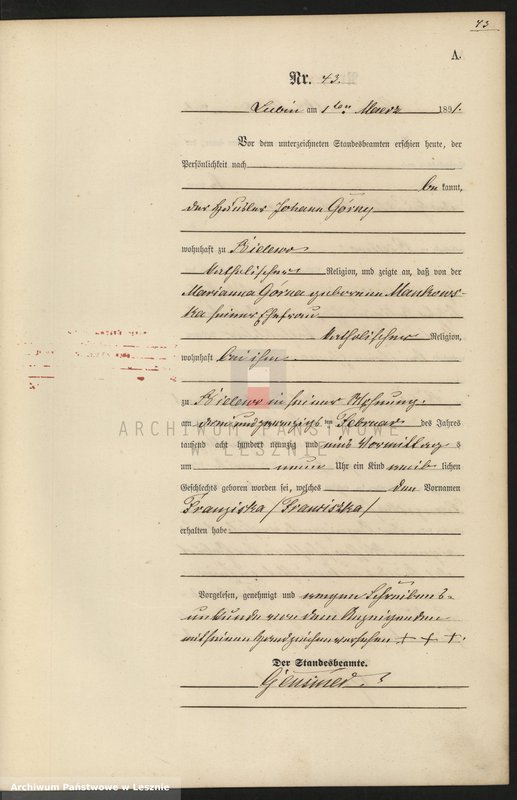 43
A.
Nr. 43.
Lubin am 1ten Maerz 1891.
Vor dem unterzeichneten Standesbeamten erschien heute, der
Persönlichkeit nach
be kannt,
der Häusler Johann Górny
wohnhaft zu Bielewo
katholischer Religion, und zeigte an, daß von der
Marianna Górna geborenen Mankows-
ka seiner Ehefrau
katholischer Religion,
wohnhaft bei ihm
zu Bielewo in seiner Wohnung
am undzwanzigsten Februar des Jahres
tausend acht hundert neunzig und eins Vormittag s
um neun Uhr ein Kind weib lichen
Geschlechts geboren worden sei, welches den Vornamen
Franziska /Franciszka/
erhalten habe
Vorgelesen, genehmigt und wegen Schreibens-
unkunde von dem Anzeigenden
mit seinem Handzeichen versehen + + +.
Der Standesbeamte.
ARCHIWUM PAŃSTWOWE
W LESZNIE
Archiwum Państwowe w Lesznie